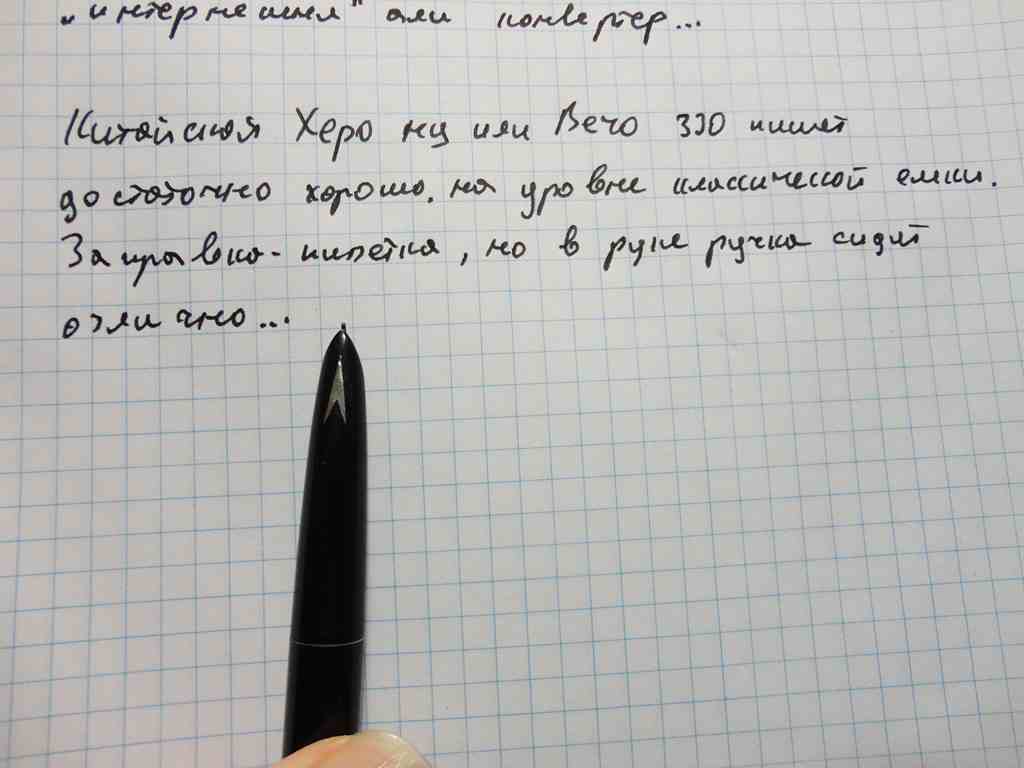 "интернешнл" али конвертер...
Китайская Херо ну или Вечо 330 пишет
достаточно хорошо. на уровне классической емки.
Заправка-пипетка, но в руке ручка сидит
отлично...